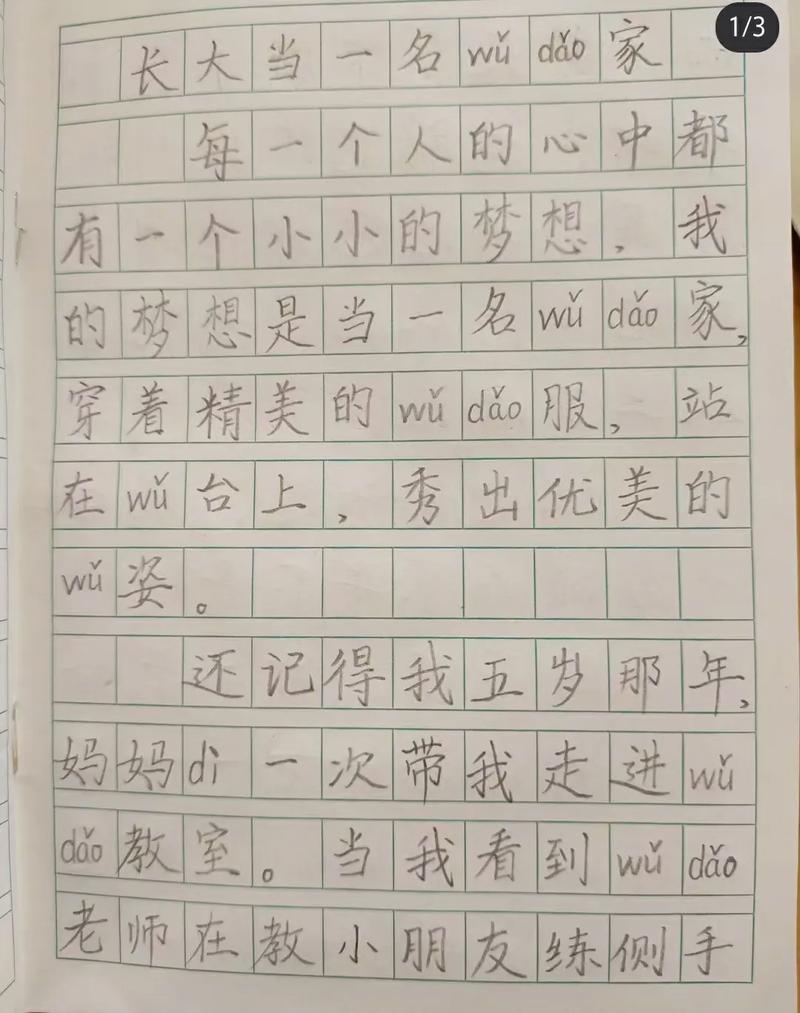 1/3
长大当一名wǔ dǎo家
每一个人的心中都
有一个小小的梦想，我
的梦想是当一名wǔ dǎo家，
穿着精美的wǔ dǎo服，站
在wǔ台上，秀出优美的
wǔ姿。
还记得我五岁那年，
妈妈dì一次带我走进wǔ
dǎo教室。当我看到wǔ dǎo
老师在教小朋友练侧手